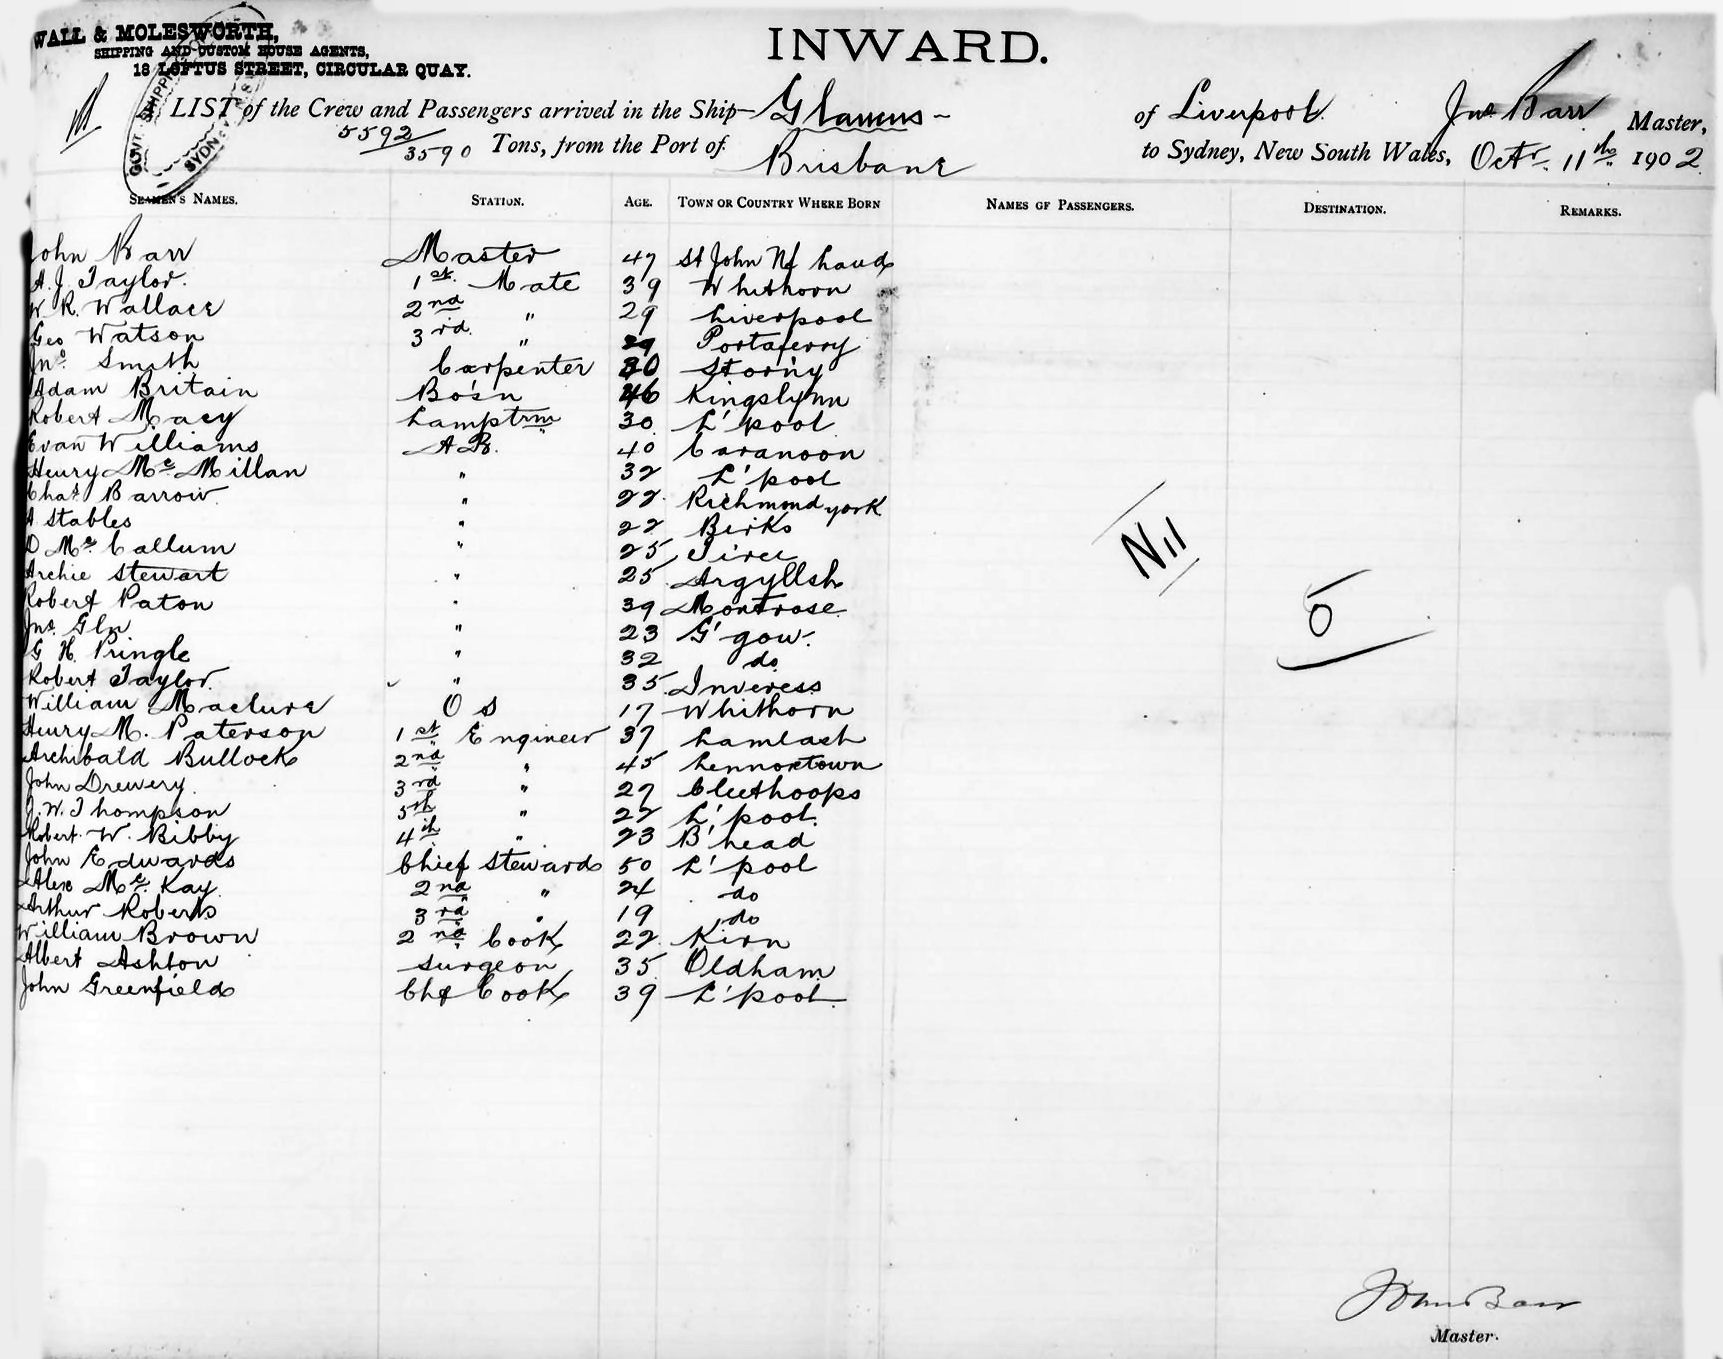 WALL & MOLESWORTH,
SHIPPING AND CUSTOM HOUSE AGENTS,
18 LOFTUS STREET, CIRCULAR QUAY.
INWARD.
LIST of the Crew and Passengers arrived in the Ship Glaucus of Liverpool Jno Barr Master,
5592/3590 Tons, from the Port of Brisbane to Sydney, New South Wales, Octr. 11th 1902
SEAMEN'S NAMES. STATION. AGE. TOWN OR COUNTRY WHERE BORN NAMES OF PASSENGERS. DESTINATION. REMARKS.
John Barr Master 47 St John Nf land
A. J. Taylor. 1st. Mate 39 Whithorn
W R. Wallace 2nd " 29 Liverpool
Geo Watson 3rd. " 29 Portaferry
Jno. Smith Carpenter 30 Storn'y
Adam Britain Bo'sn 46 Kingslynn
Robert Macy Lamptrm 30 L'pool
Evan Williams A B. 40 Caranoon
Henry Mc Millan " 32 L'pool
Chas. Barrow " 22 Richmond york
A Stables " 22 Birks
D Mc Callum " 25 Tiree
Archie Stewart " 25 Argyllsh
Robert Paton " 39 Montrose
Jno. Gln " 23 G'gow.
G H. Pringle " 32 do
Robert Taylor " 35 Inveress
William Maclure O S 17 Whithorn
Henry M. Paterson 1st Engineer 37 Lamlash
Archibald Bullock 2nd " 45 Lennoxtown
John Drewery 3rd " 27 Cleethoops
J. W. Thompson 5th " 22 L'pool.
Robert W. Bibby 4th " 23 B'head
John Edwards Chief Steward 50 L'pool
Alex Mc. Kay. 2nd " 24 do
Arthur Roberts 3rd " 19 do
William Brown 2nd Cook 22 Kirn
Albert Ashton Surgeon 35 Oldham
John Greenfield Chf Cook 39 L'pool
Nil
0
John Barr
Master.